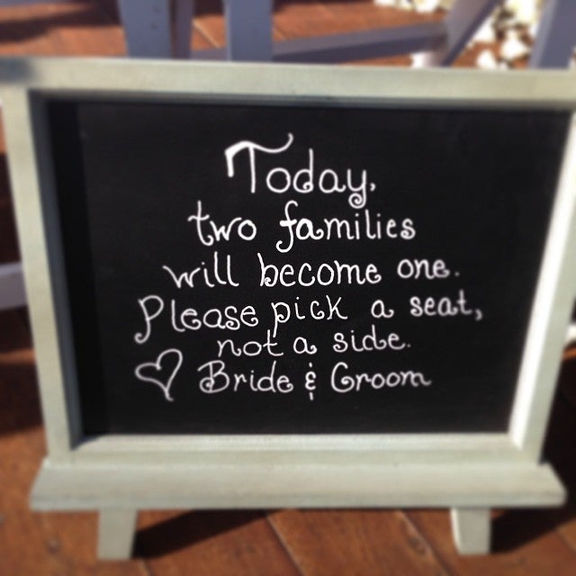 Today,
two families
will become one.
Please pick a seat,
not a side.
♡ Bride & Groom